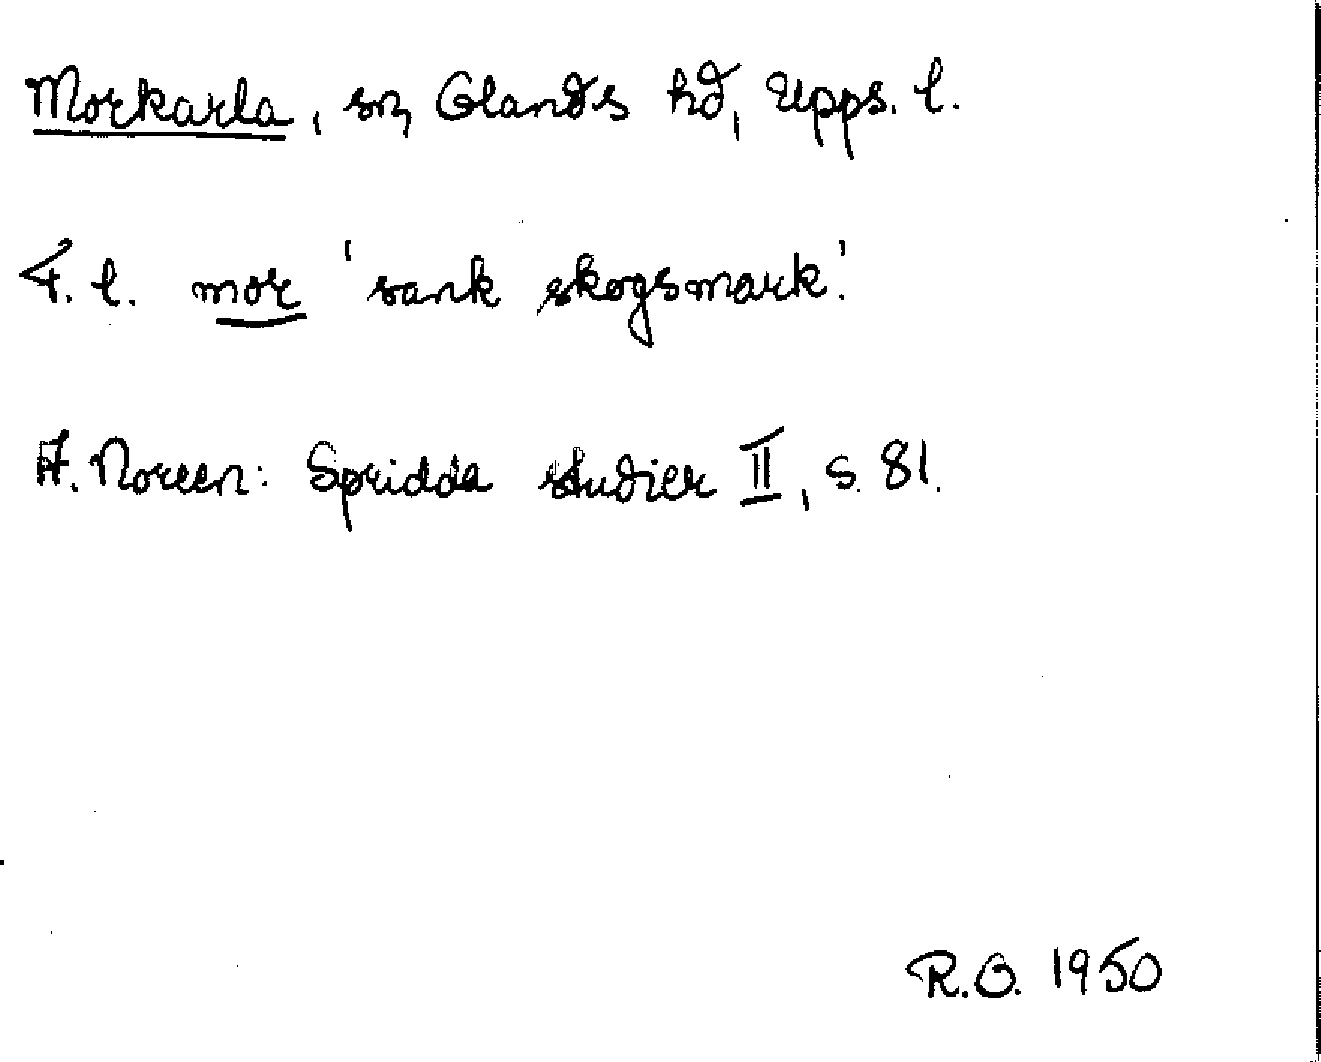 Morkarla, sn, Olands hd, Upps. l.
F. l. mor 'sank skogsmark'.
A. Noreen: Spridda studier II, s. 81.
R.O. 1950